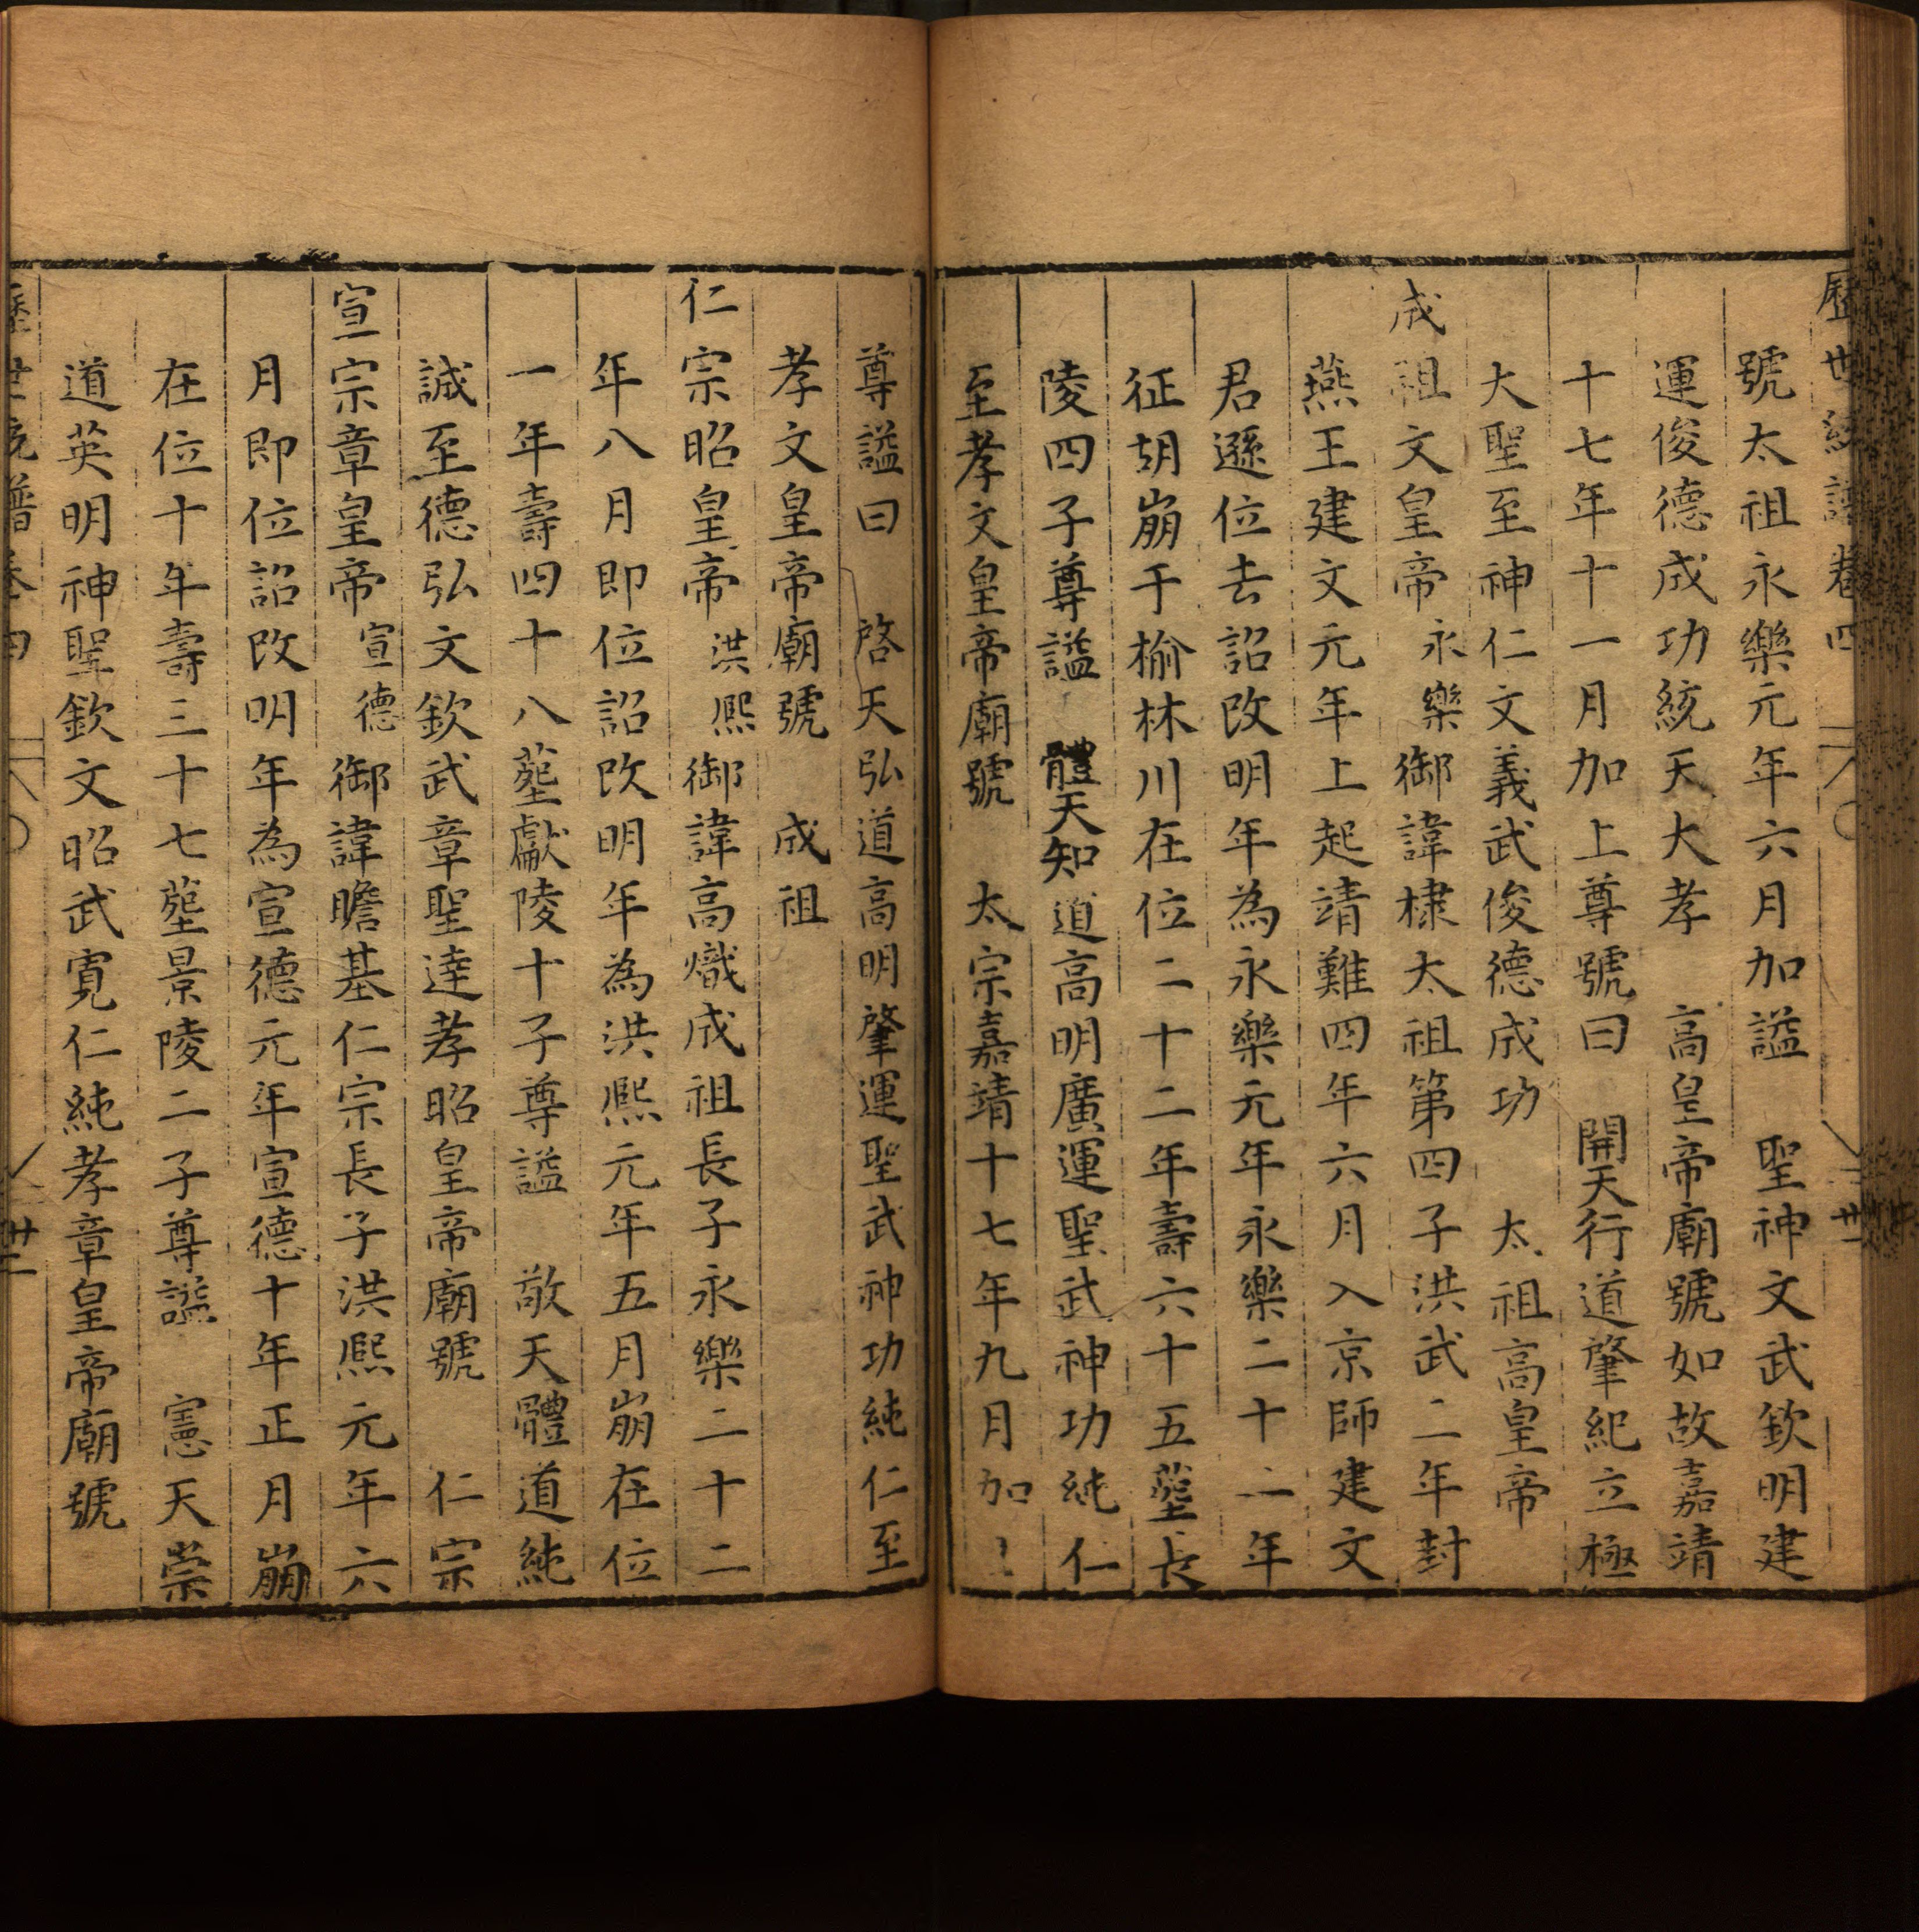 歷世統譜卷四
廿一
號太祖永樂元年六月加謚　聖神文武欽明建
運俊德成功統天大孝　高皇帝廟號如故嘉靖
十七年十一月加上尊號曰　開天行道肇紀立極
大聖至神仁文義武俊德成功　太祖高皇帝
成祖文皇帝永樂御諱棣太祖第四子洪武二年封
燕王建文元年上起靖難四年六月入京師建文
君遜位去詔改明年為永樂元年永樂二十二年
征胡崩于榆林川在位二十二年壽六十五塟長
陵四子尊謚　體天知道高明廣運聖武神功純仁
至孝文皇帝廟號　太宗嘉靖十七年九月加
尊謚曰　啓天弘道高明肇運聖武神功純仁至
孝文皇帝廟號　成祖
仁宗昭皇帝洪熙御諱高熾成祖長子永樂二十二
年八月即位詔改明年為洪熙元年五月崩在位
一年壽四十八塟獻陵十子尊謚　敬天體道純
誠至德弘文欽武章聖達孝昭皇帝廟號　仁宗
宣宗章皇帝宣德御諱瞻基仁宗長子洪熙元年六
月即位詔改明年為宣德元年宣德十年正月崩
在位十年壽三十七塟景陵二子尊謚　憲天崇
道英明神聖欽文昭武寬仁純孝章皇帝廟號
歷世統譜卷四
廿二